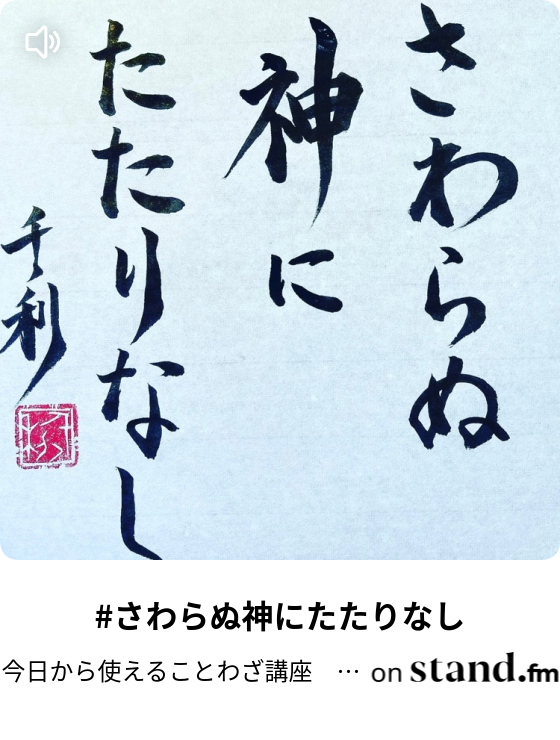 さわらぬ
神に
たたりなし
千利
#さわらぬ神にたたりなし
今日から使えることわざ講座 … on stand.fm